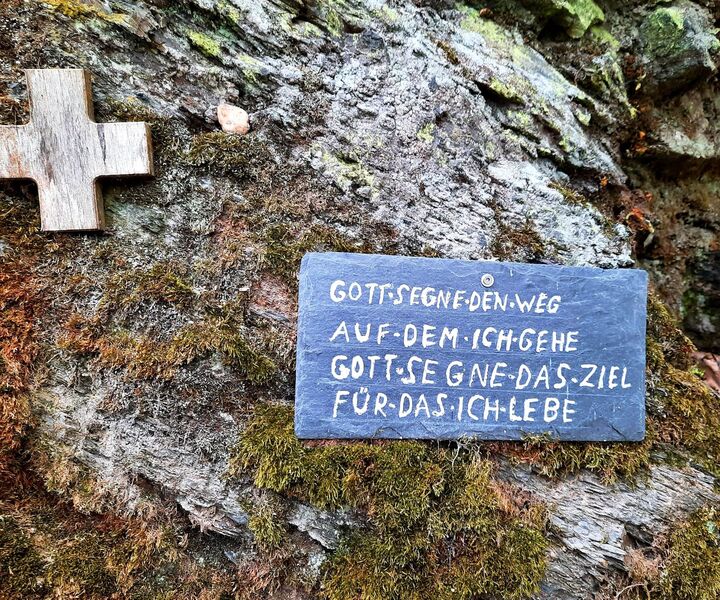 GOTT·SEGNE·DEN·WEG
AUF·DEM·ICH·GEHE
GOTT·SEGNE·DAS·ZIEL
FÜR·DAS·ICH·LEBE